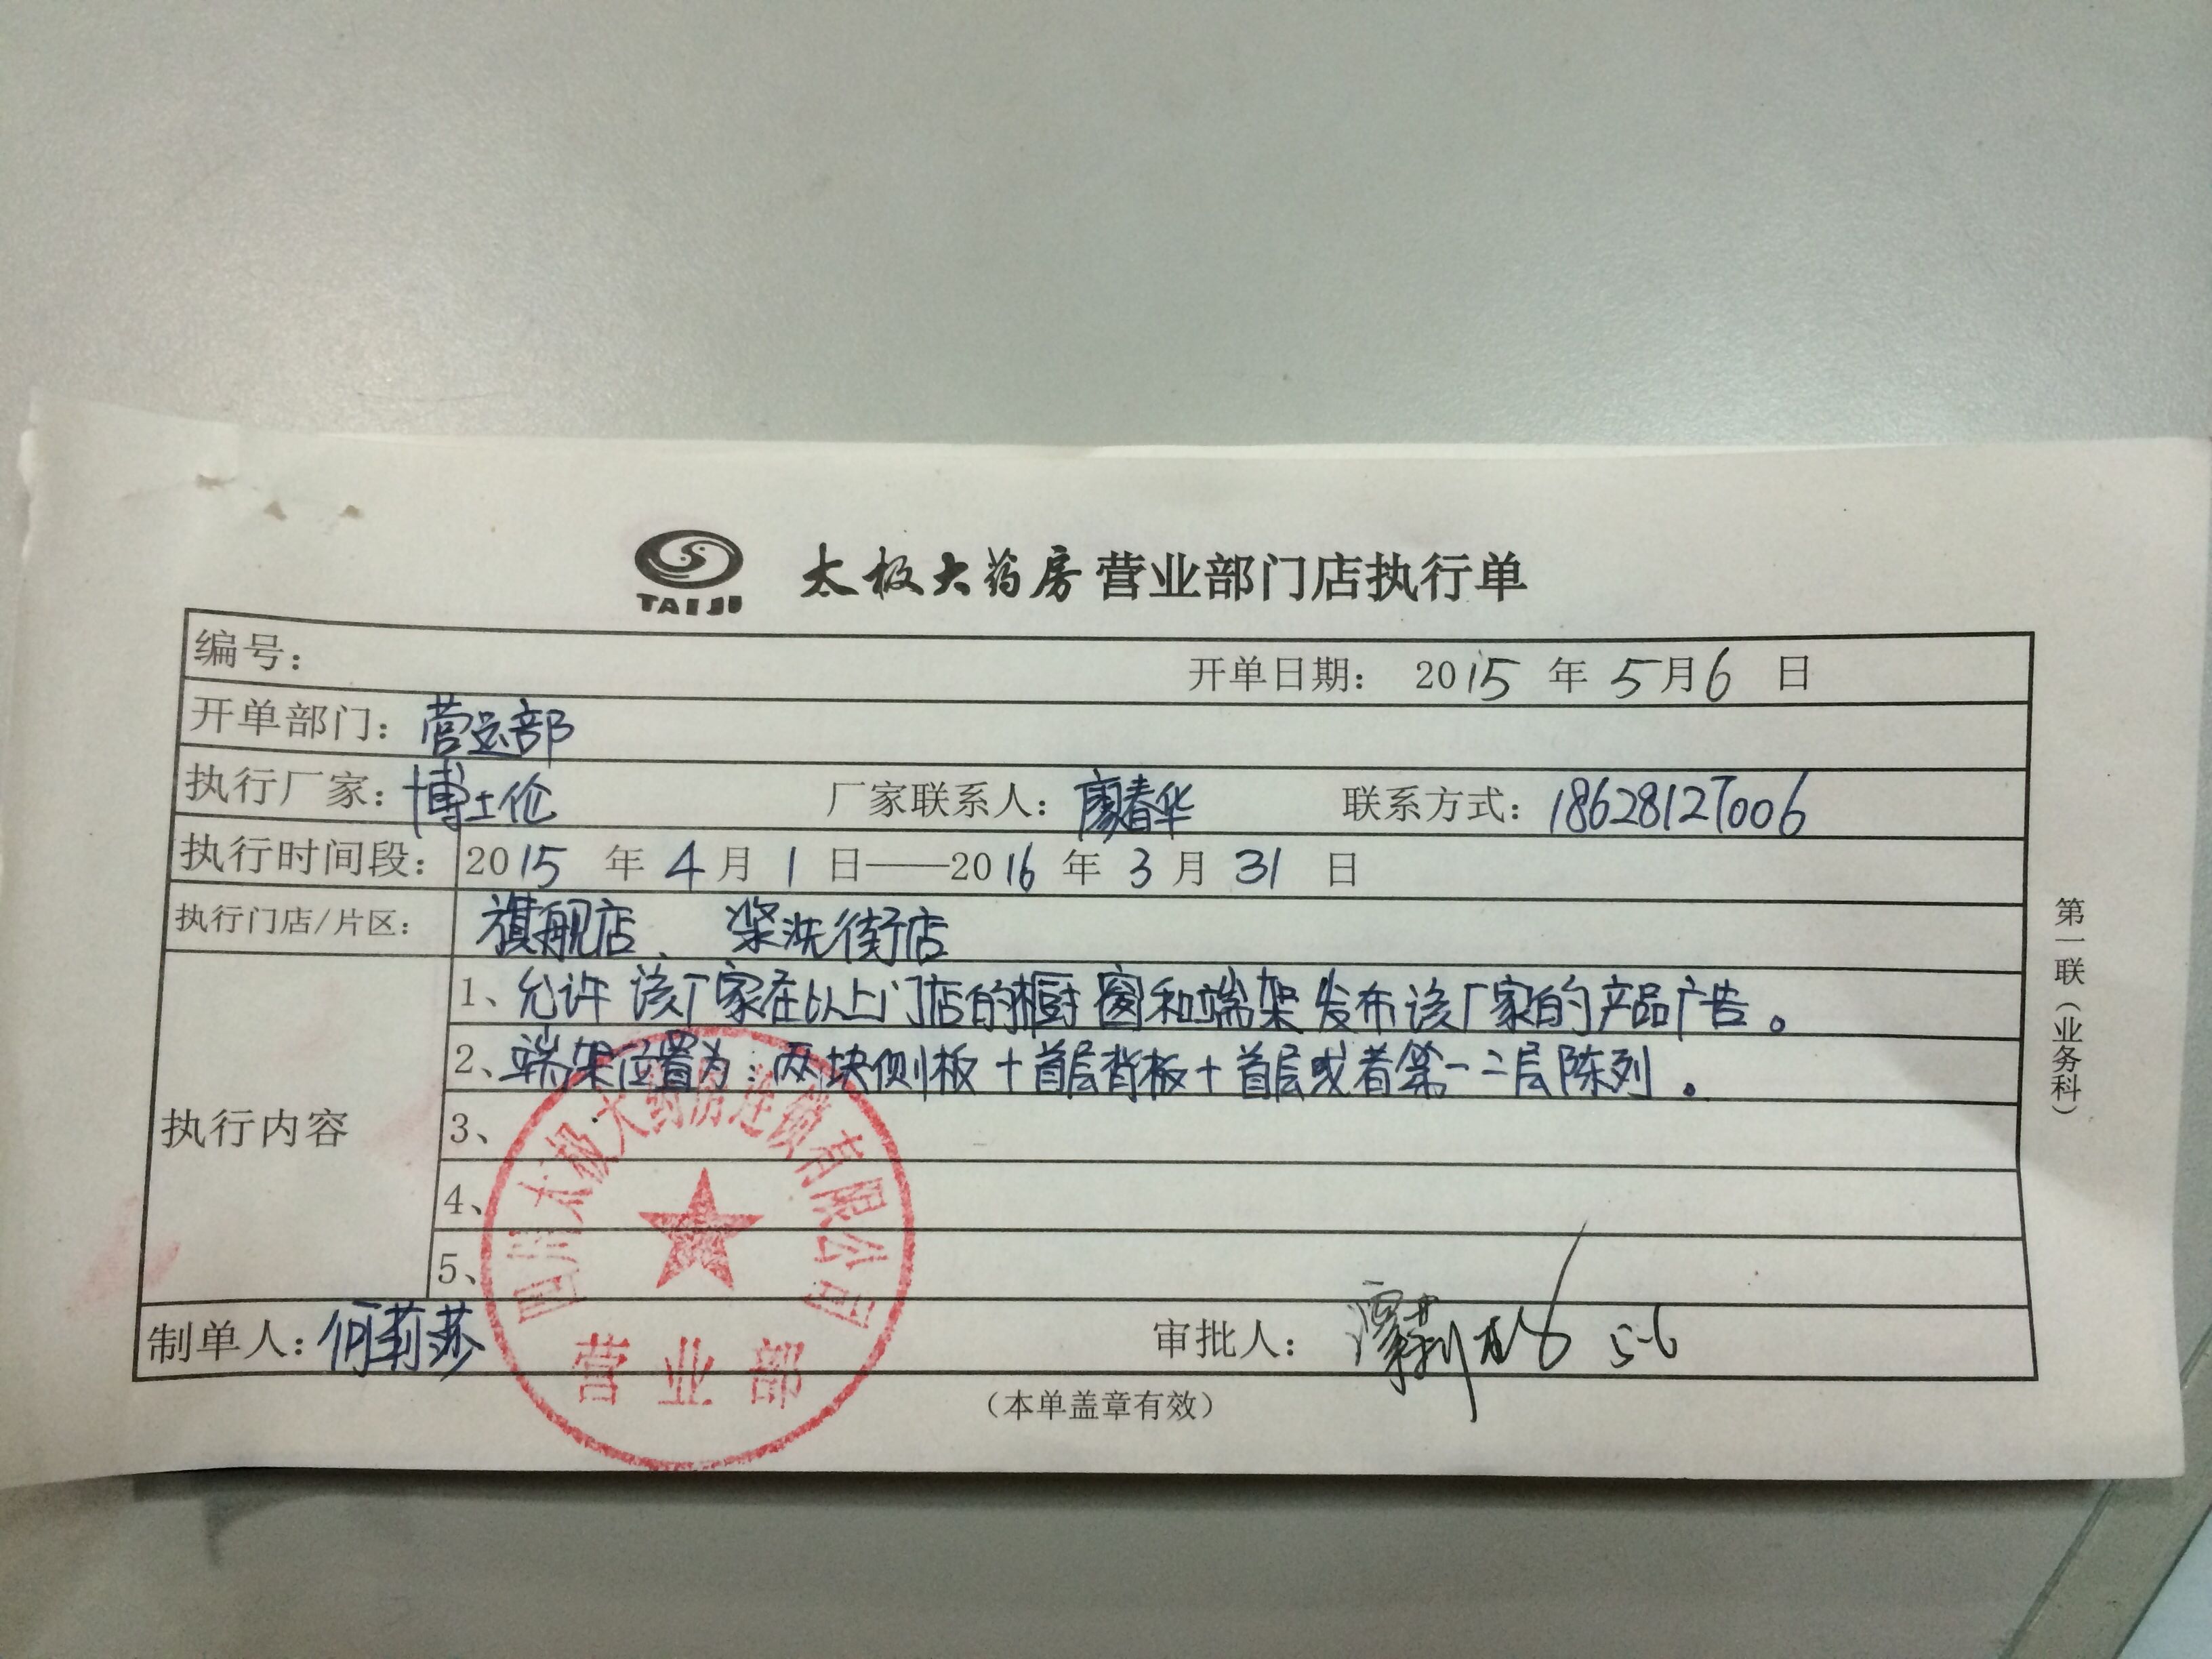 TAIJI 太极大药房营业部门店执行单
编号： 开单日期： 2015 年 5 月 6 日
开单部门：营运部
执行厂家：博士伦 厂家联系人：廖春华 联系方式：18628127006
执行时间段： 2015 年 4 月 1 日——2016 年 3 月 31 日
执行门店/片区： 旗舰店、浆洗街店
执行内容
1、允许该厂家在以上门店的橱窗和端架发布该厂家的产品广告。
2、端架位置为：两块侧板+首层背板+首层或者第一二层陈列。
3、
4、
5、
制单人：何莉莎 审批人： 5-6
（本单盖章有效）
第一联（业务科）
四川太极大药房连锁有限公司
营业部